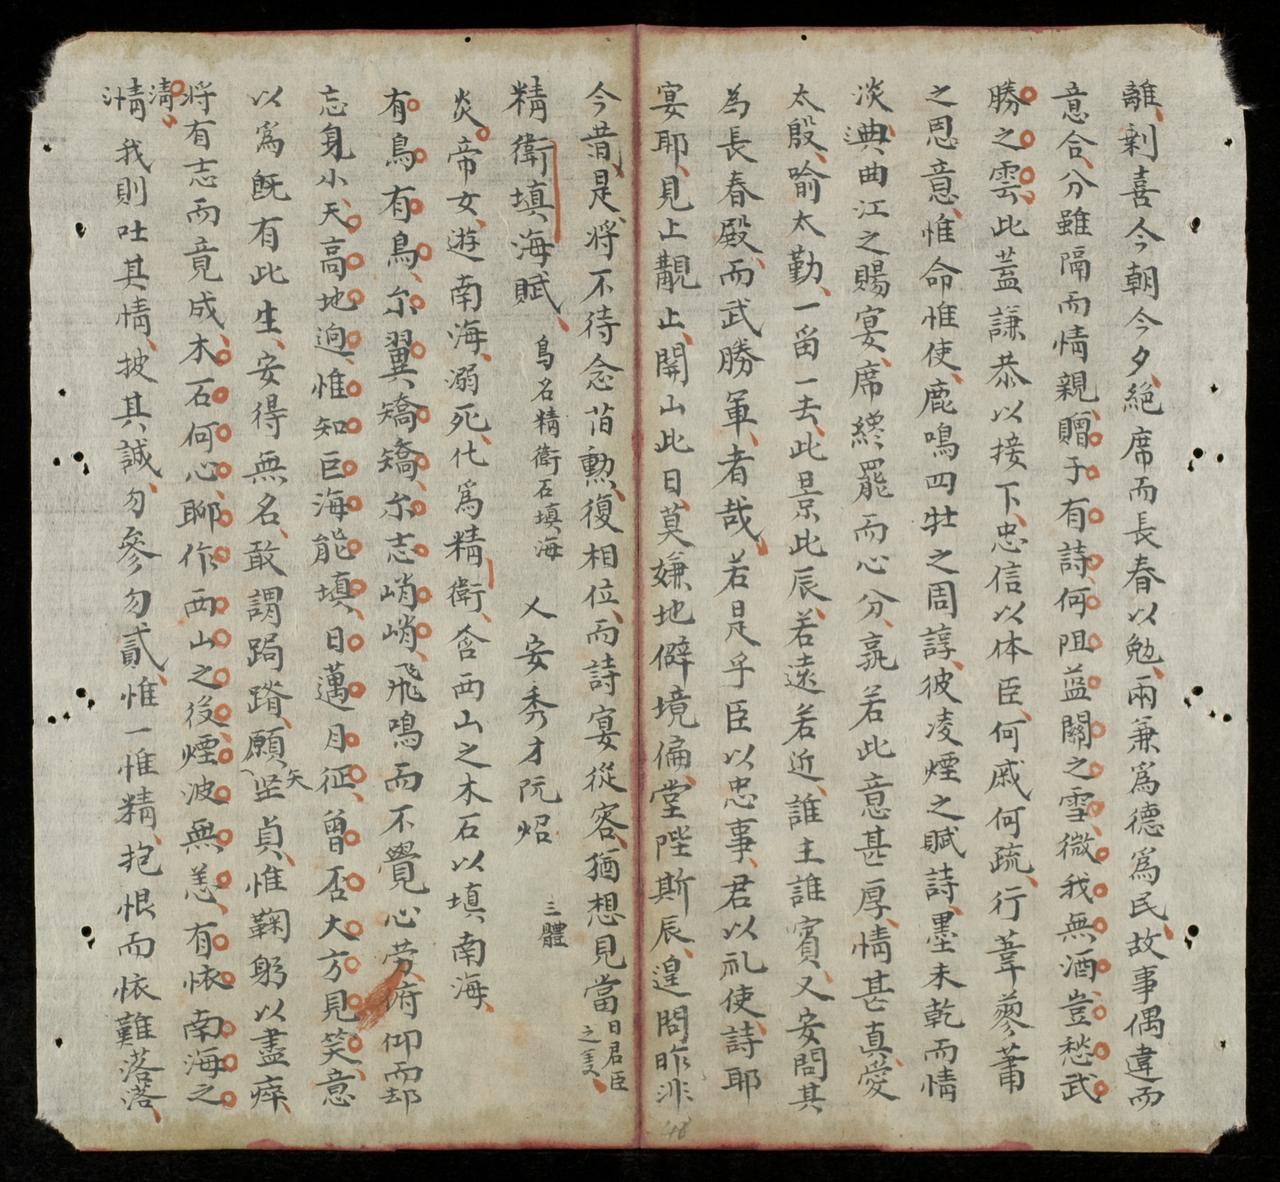 離剩喜今朝今夕絕席而長春以勉兩兼爲德爲民故事偶違而
意合分雖隔而情親贈于有詩何阻蓝關之雪微我無酒豈愁武
勝之雲此蓋謙恭以接下忠信以体臣何戚何疏行葦蓼蕭
之恩意惟命惟使鹿鳴四牡之周諄彼凌煙之賦詩墨未乾而情
淡典曲江之賜宴席終罷而心分孰若此意甚厚情甚真愛
太殷喻太勤一留一去此景此辰若遠若近誰主誰賓又安問其
為長春殿而武勝軍者哉若是乎臣以忠事君以礼使詩耶
宴耶見止覯止關山此日莫嫌地僻境偏堂陛斯辰遑問昨非
今昔是將不待念旧勲復相位而詩宴從容猶想見當日君臣之美
精衛填海賦 鳥名精衛石填海 人安秀才阮炤 三體
炎帝女遊南海溺死化爲精衛含西山之木石以填南海
有鳥有鳥尔翼矯矯尔志峭峭飛鳴而不覺心劳俯仰而却
忘身小天高地逈惟知巨海能填日邁月征曾否大方見笑意
以爲既有此生安得無名敢謂跼蹐願矢坚貞惟鞠躬以盡瘁
将有志而竟成木石何心聊作西山之役煙波無恙有恢南海之清
情我則吐其情披其誠勿參勿貳惟一惟精抱恨而恢難落落